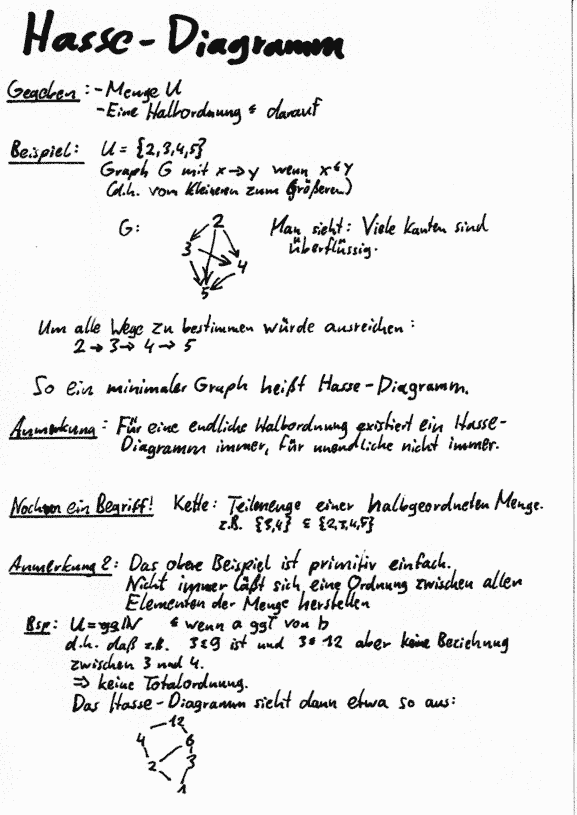 Hasse-Diagramm
Gegeben: - Menge U
- Eine Halbordnung ≤ darauf
Beispiel: U = {2,3,4,5}
Graph G mit x → y wenn x ≤ y
(d.h. vom kleineren zum Größeren)
G:
2
3
4
5
Man sieht: Viele Kanten sind
überflüssig.
Um alle Wege zu bestimmen würde ausreichen:
2 → 3 → 4 → 5
So ein minimaler Graph heißt Hasse-Diagramm.
Anmerkung: Für eine endliche Halbordnung existiert ein Hasse-
Diagramm immer, für unendliche nicht immer.
Nochmen ein Begriff! Kette: Teilmenge einer halbgeordneten Menge.
z.B. {3,4} ⊆ {2,3,4,5}
Anmerkung 2: Das obere Beispiel ist primitiv einfach.
Nicht immer läßt sich eine Ordnung zwischen allen
Elementen der Menge herstellen
Bsp: U = ℕ ≤ wenn a ggT von b
d.h. daß z.B. 3≤9 ist und 3≤12 aber keine Beziehung
zwischen 3 und 4.
⇒ keine Totalordnung.
Das Hasse-Diagramm sieht dann etwa so aus:
12
4 6
2 3
1